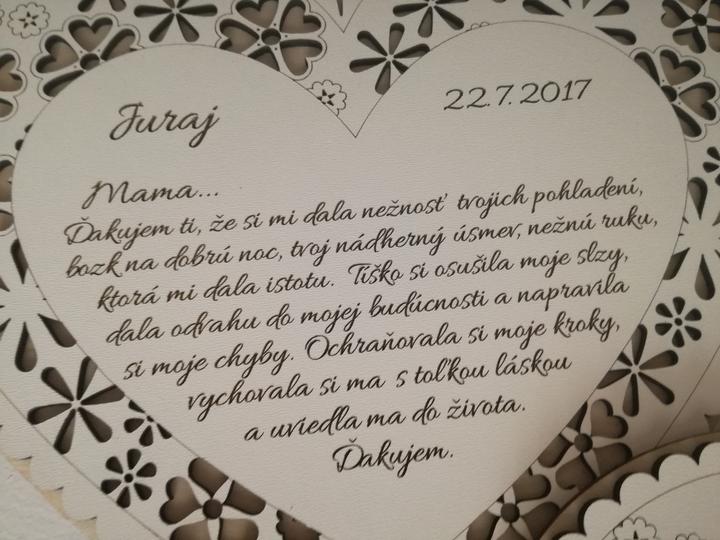 Juraj
22.7.2017
Mama...
Ďakujem ti, že si mi dala nežnosť tvojich pohladení,
bozk na dobrú noc, tvoj nádherný úsmev, nežnú ruku,
ktorá mi dala istotu. Tíško si osušila moje slzy,
dala odvahu do mojej budúcnosti a napravila
si moje chyby. Ochraňovala si moje kroky,
vychovala si ma s toľkou láskou
a uviedla ma do života.
Ďakujem.